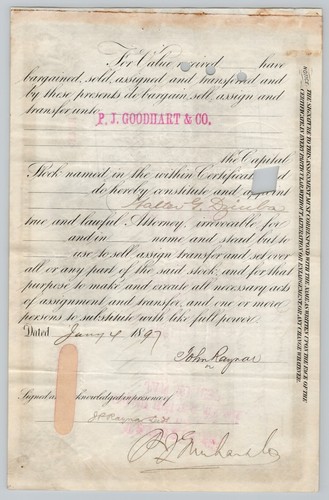 For Value received have
bargained, sold, assigned and transferred and
by these presents do bargain, sell, assign and
transfer unto
P. J. GOODHART & CO.
the Capital
Stock named in the within Certificate and
do hereby constitute and appoint
Walter G.
true and lawful Attorney, irrevocable for
and in name and stead but to
use, to sell, assign transfer and set over
all or any part of the said stock, and for that
purpose to make and execute all necessary acts
of assignment and transfer, and one or more
persons to substitute with like full power.
Dated Jany 4 1897
John Raynor
Signed and acknowledged in presence of
P J Goodhart & Co
NOTICE THE SIGNATURE TO THIS ASSIGNMENT MUST CORRESPOND WITH THE NAME AS WRITTEN UPON THE FACE OF THE
CERTIFICATE, IN EVERY PARTICULAR WITHOUT ALTERATION OR ENLARGEMENT OR ANY CHANGE WHATEVER.